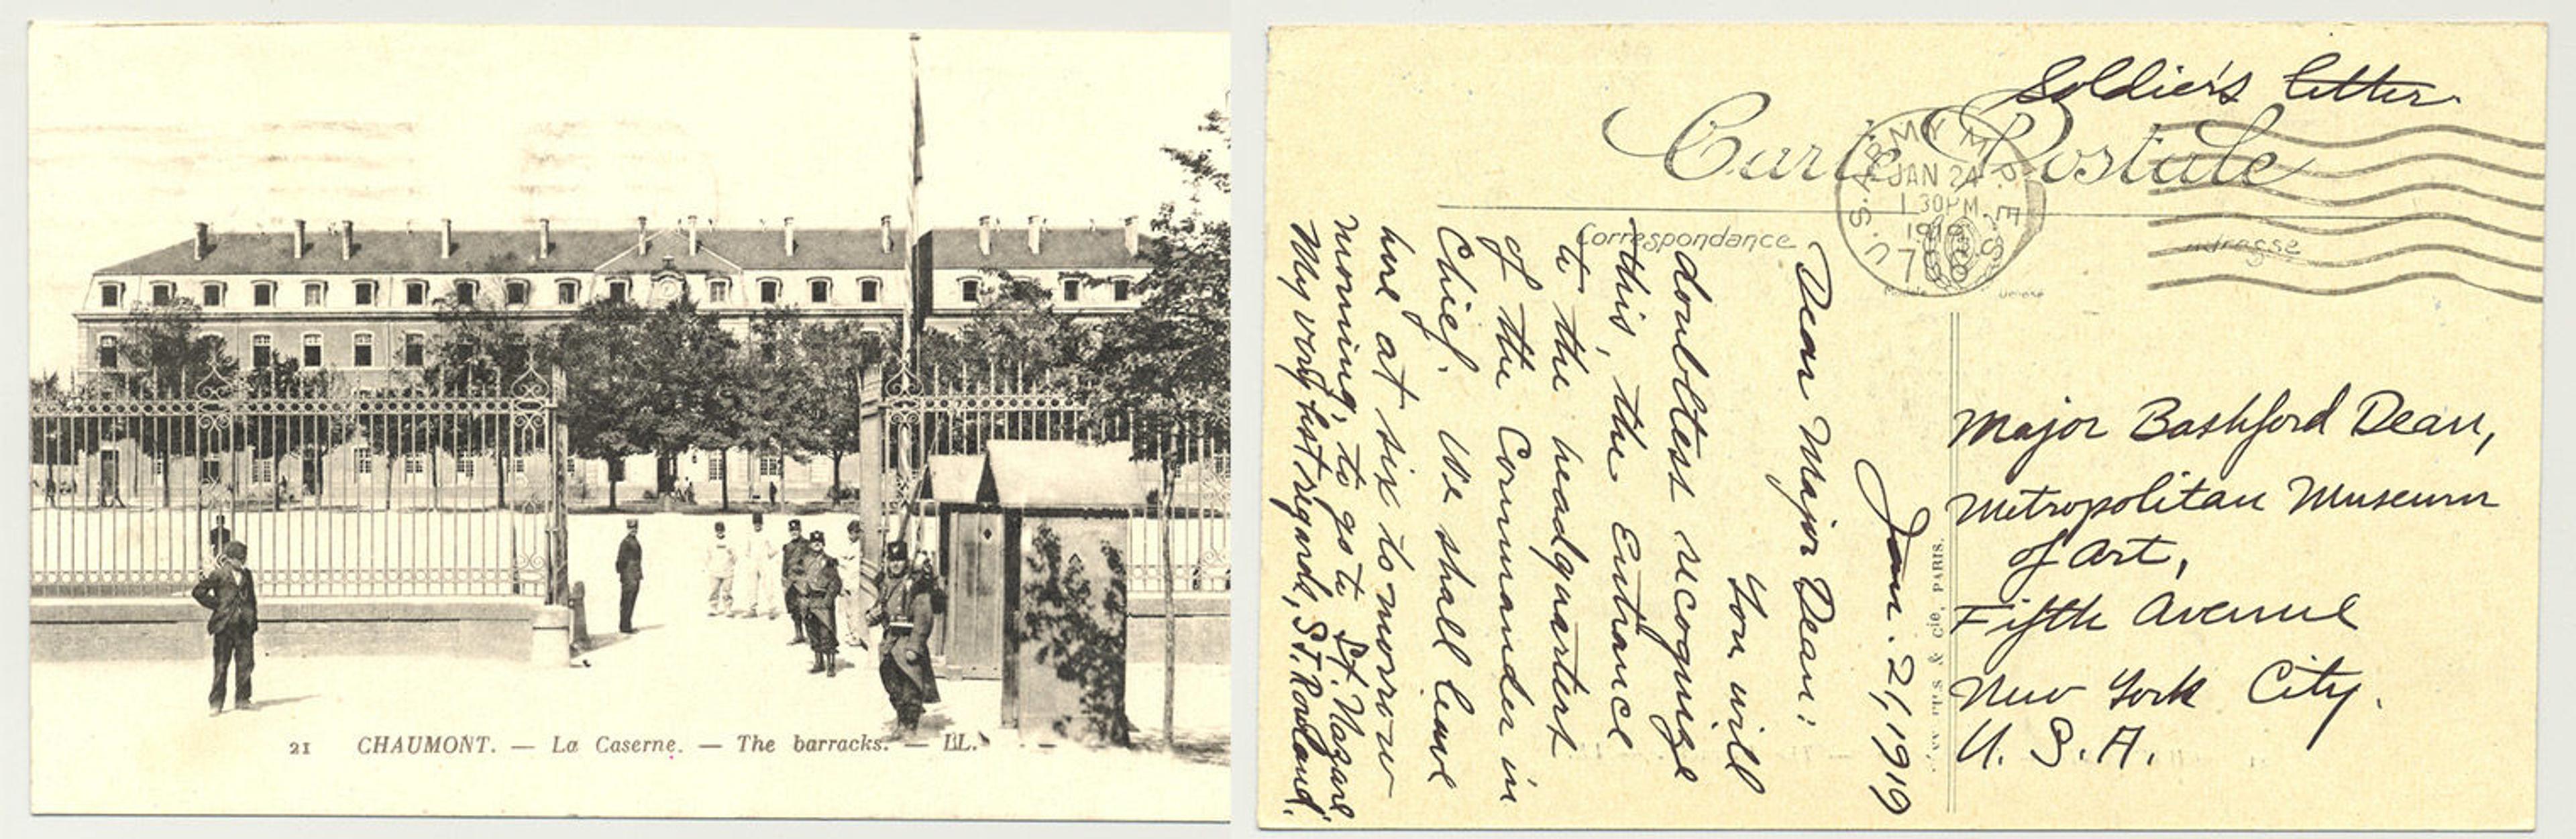 21 CHAUMONT. — La Caserne. — The barracks. — LL.
Soldier's letter
Carte Postale
U.S. ARMY M.P.E.S.
JAN 24
1 30PM
1919
Correspondance
Adresse
Jan. 21, 1919
Dear Major Dean:
You will
doubtless recognize
this, the Entrance
to the headquarters
of the Commander in
Chief. We shall leave
here at six to morrow
morning, to go to St. Nazaire
My very best regards, S.T. Rowland.
& Cie, PARIS.
Major Bashford Dean,
Metropolitan Museum
of Art,
Fifth Avenue
New York City.
U. S. A.